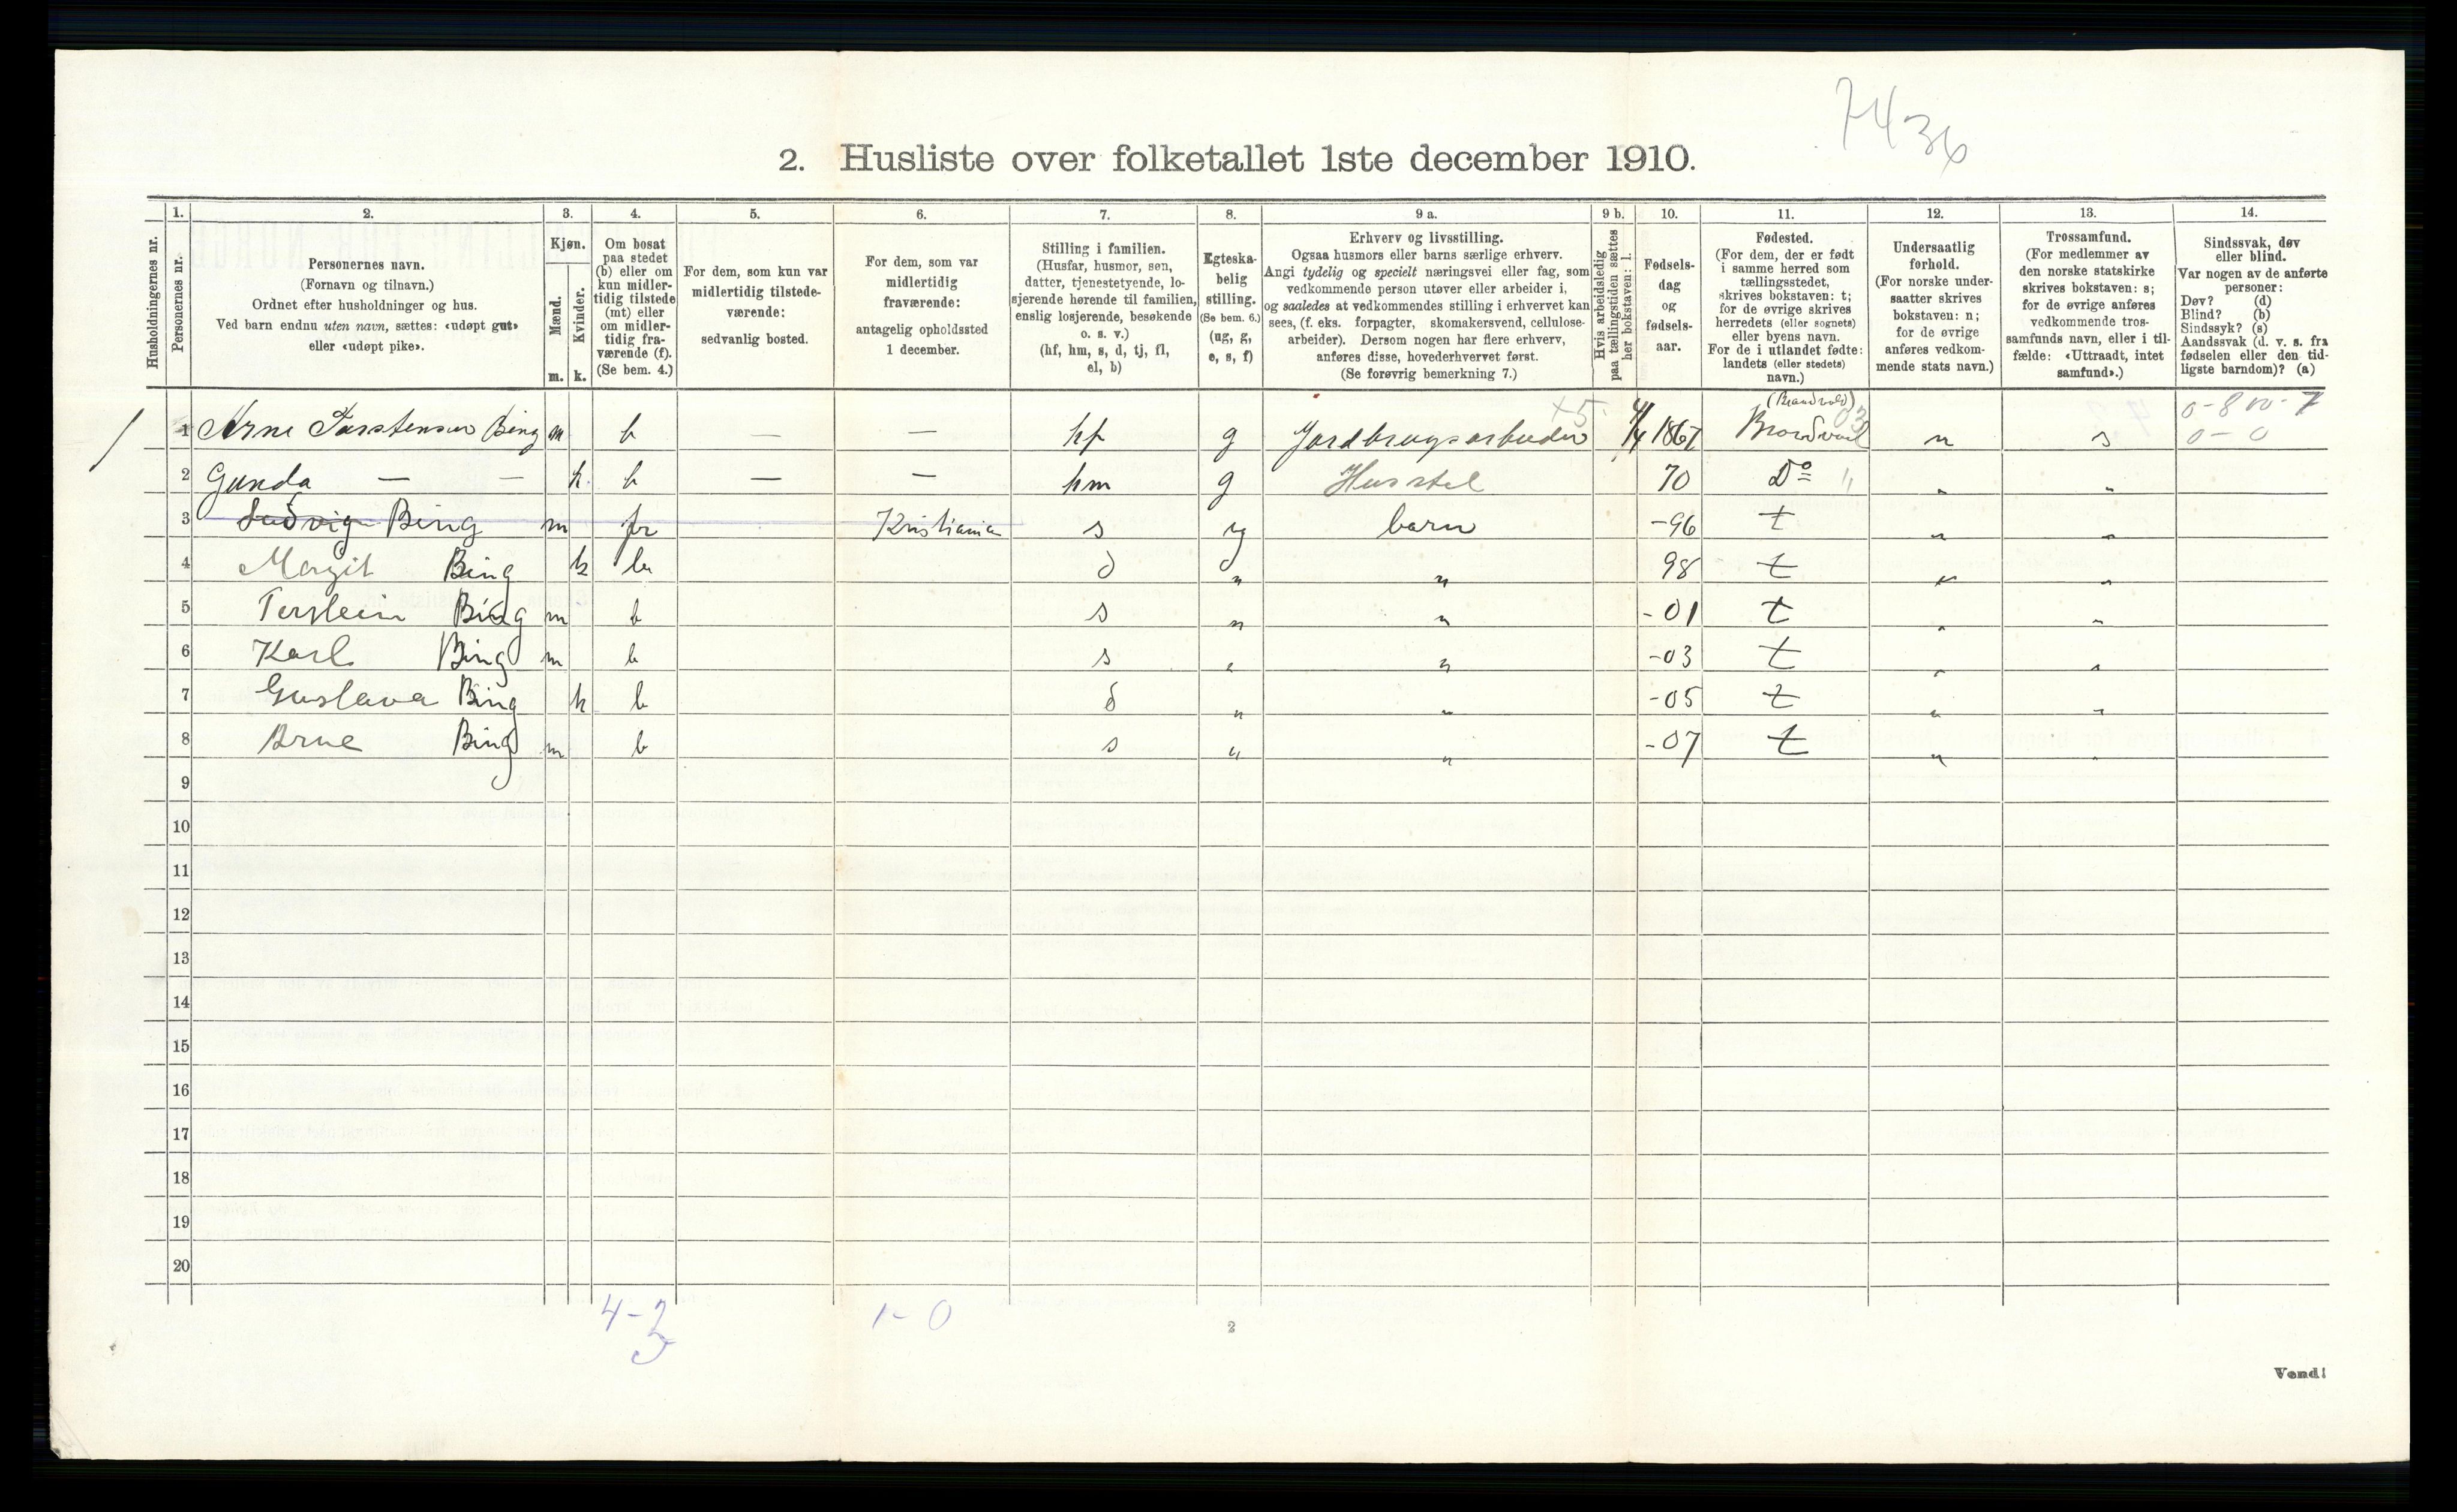 7436
2. Husliste over folketallet 1ste december 1910.
Husholdningernes nr.
1. Personernes nr.
2. Personernes navn.
(Fornavn og tilnavn.)
Ordnet efter husholdninger og hus.
Ved barn endnu uten navn, sættes: «udøpt gut»
eller «udøpt pike».
3. Kjøn.
Mænd. m.
Kvinder. k.
4. Om bosat
paa stedet
(b) eller om
kun midler-
tidig tilstede
(mt) eller
om midler-
tidig fra-
værende (f).
(Se bem. 4.)
5. For dem, som kun var
midlertidig tilstede-
værende:
sedvanlig bosted.
6. For dem, som var
midlertidig
fraværende:
antagelig opholdssted
1 december.
7. Stilling i familien.
(Husfar, husmor, søn,
datter, tjenestetyende, lo-
sjerende hørende til familien,
enslig losjerende, besøkende
o. s. v.)
(hf, hm, s, d, tj, fl,
el, b)
8. Egteska-
belig
stilling.
(Se bem. 6.)
(ug, g,
e, s, f)
9 a. Erhverv og livsstilling.
Ogsaa husmors eller barns særlige erhverv.
Angi tydelig og specielt næringsvei eller fag, som
vedkommende person utøver eller arbeider i,
og saaledes at vedkommendes stilling i erhvervet kan
sees, (f. eks. forpagter, skomakersvend, cellulose-
arbeider). Dersom nogen har flere erhverv,
anføres disse, hovederhvervet først.
(Se forøvrig bemerkning 7.)
9 b. Hvis arbeidsledig
paa tællingstiden sættes
her bokstaven: l.
10. Fødsels-
dag
og
fødsels-
aar.
11. Fødested.
(For dem, der er født
i samme herred som
tællingsstedet,
skrives bokstaven: t;
for de øvrige skrives
herredets (eller sognets)
eller byens navn.
For de i utlandet fødte:
landets (eller stedets)
navn.)
12. Undersaatlig
forhold.
(For norske under-
saatter skrives
bokstaven: n;
for de øvrige
anføres vedkom-
mende stats navn.)
13. Trossamfund.
(For medlemmer av
den norske statskirke
skrives bokstaven: s;
for de øvrige anføres
vedkommende tros-
samfunds navn, eller i til-
fælde: «Uttraadt, intet
samfund».)
14. Sindssvak, døv
eller blind.
Var nogen av de anførte
personer:
Døv? (d)
Blind? (b)
Sindssyk? (s)
Aandssvak (d. v. s. fra
fødselen eller den tid-
ligste barndom)? (a)
(Brandvold)
1 Arne Torstensen Bing m b — — hf g Jordbrugsarbeider 1867 n s
2 Gunda — — k b — — hm g Husstel 70 Do " "
3 Ludvig Bing m fr Kristiania s ug barn -96 t " "
4 Margit Bing k b d " " 98 t " "
5 Terstein Bing m b s " " -01 t " "
6 Karl Bing m b s " " -03 t " "
7 Gustava Bing k b d " " -05 t " "
8 Arne Bing m b s " " -07 t " "
9
10
11
12
13
14
15
16
17
18
19
20
1-0
2
Vend!